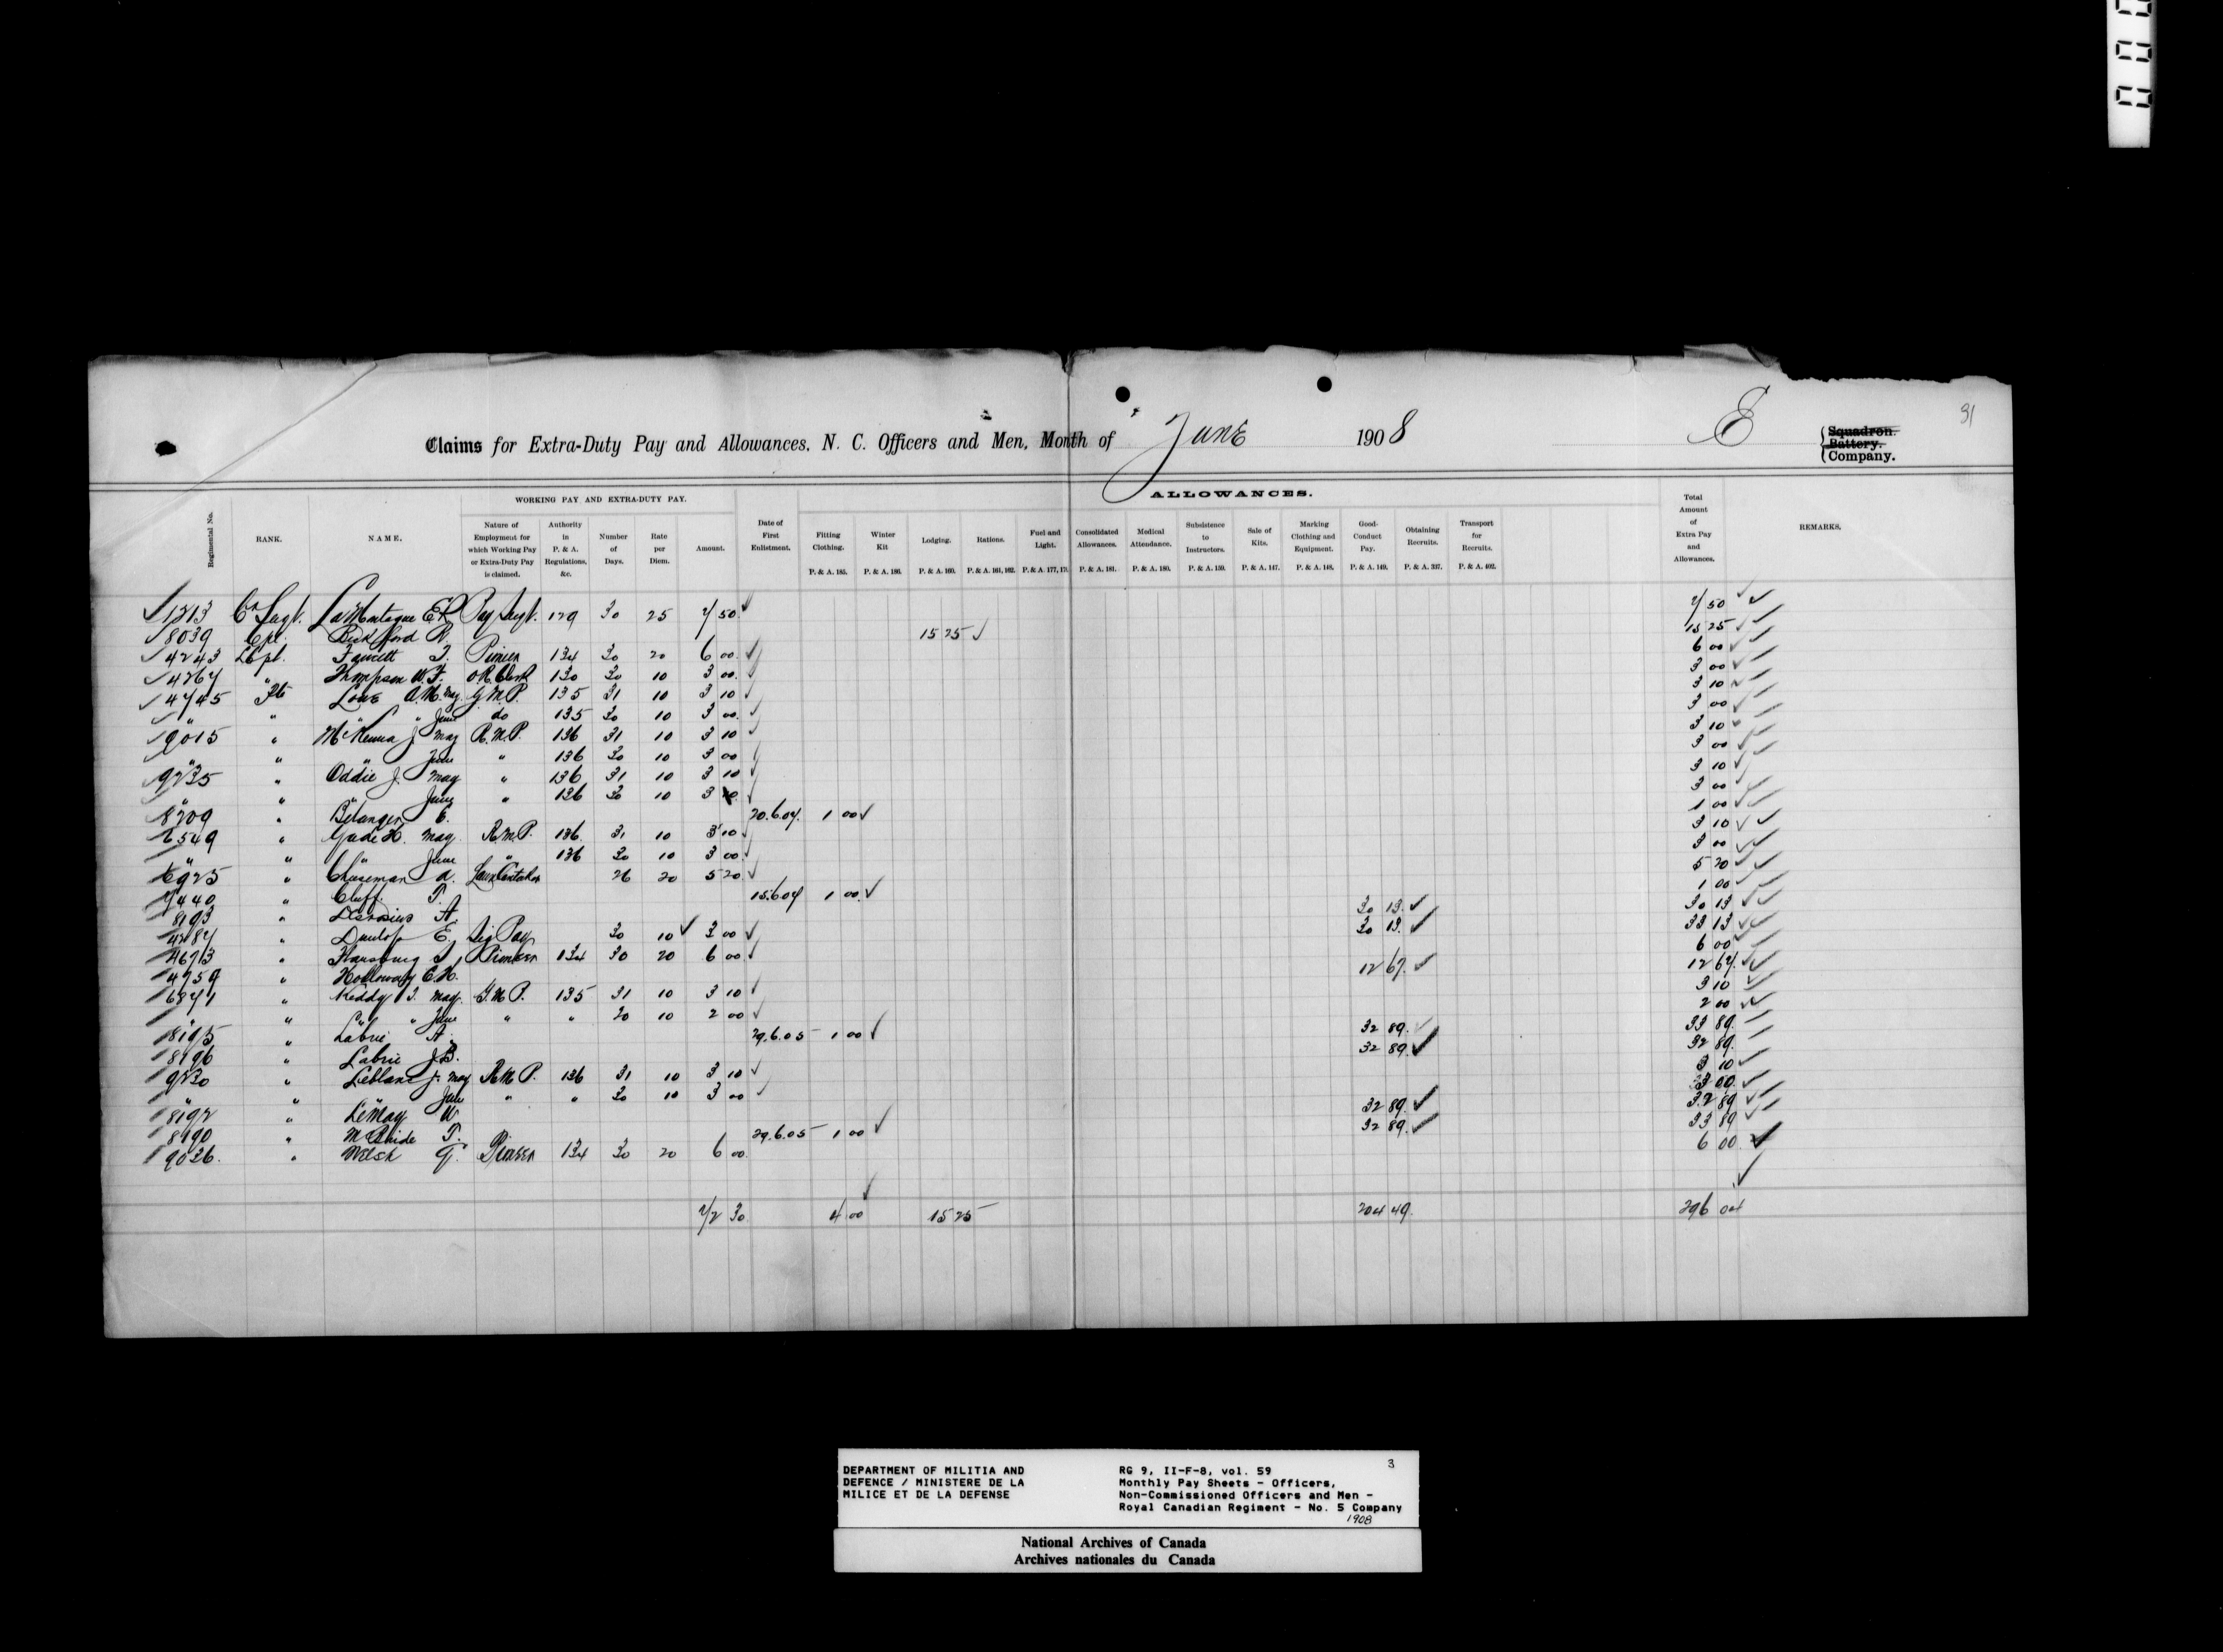 31
Claims for Extra-Duty Pay and Allowances, N. C. Officers and Men, Month of June 1908 E { Squadron. Battery. Company.
WORKING PAY AND EXTRA-DUTY PAY. ALLOWANCES.
Regimental No. RANK. NAME. Nature of Employment for which Working Pay or Extra-Duty Pay is claimed. Authority in P. & A. Regulations, &c. Number of Days. Rate per Diem. Amount. Date of First Enlistment. Fitting Clothing. P. & A. 185. Winter Kit P. & A. 186. Lodging. P. & A. 160. Rations. P. & A. 161, 162. Fuel and Light. P. & A. 177, 17 Consolidated Allowances. P. & A. 181. Medical Attendance. P. & A. 180. Subsistence to Instructors. P. & A. 159. Sale of Kits. P. & A. 147. Marking Clothing and Equipment. P. & A. 148. Good-Conduct Pay. P. & A. 149. Obtaining Recruits. P. & A. 337. Transport for Recruits. P. & A. 402. Total Amount of Extra Pay and Allowances. REMARKS.
Sergt. LaMontagne Pay Sergt. 129 30 25 7 50 7 50
8039 Cpl. Bickford R. 15 25 15 25
4243 LCpl. Fawcett T. Pioneer 134 30 20 6 00 6 00
4267 " Thompson W.F. O.R. Clerk 130 30 10 3 00 3 00
4745 Pte Love A.M. May G.M.P. 135 31 10 3 10 3 10
" " " " June do 135 30 10 3 00 3 00
9015 " McKenna J May R.M.P. 136 31 10 3 10 3 10
" " " June " 136 30 10 3 00 3 00
9235 " Oddie J. May " 136 31 10 3 10 3 10
" " " June " 136 30 10 3 00 3 00
8209 " Bélanger E. 20.6.04. 1 00 1 00
" H. May R.M.P. 136 31 10 3 10 3 10
" " " June " 136 30 10 3 00 3 00
6925 " Cheeseman A. 26 20 5 20 5 20
7440 " Cluff. T. 15.6.04 1 00 1 00
8193 " A. 30 13 30 13
" Dunlop E. Sig Pay 30 10 3 00 30 13 33 13
" Pioneer 134 30 20 6 00 6 00
4759 " Holloway C.H. 12 67 12 67
" Keddy T. May G.M.P. 135 31 10 3 10 3 10
" " " " June " " 20 10 2 00 2 00
8195 " Labrie A. 29.6.05 1 00 32 89 33 89
8196 " Labrie J.B. 32 89 32 89
9230 " Leblanc J. May R.M.P. 136 31 10 3 10 3 10
" " " June " " 30 10 3 00 3 00
8192 " LeMay W 32 89 32 89
8190 " McBride T. 29.6.05 1 00 32 89 33 89
9036. " Welsh T. Pioneer 134 30 20 6 00 6 00
72 30 4 00 15 25 204 49 296 04
DEPARTMENT OF MILITIA AND RG 9, II-F-8, vol. 59 3
DEFENCE / MINISTERE DE LA Monthly Pay Sheets - Officers,
MILICE ET DE LA DEFENSE Non-Commissioned Officers and Men -
Royal Canadian Regiment - No. 5 Company
1908
National Archives of Canada
Archives nationales du Canada